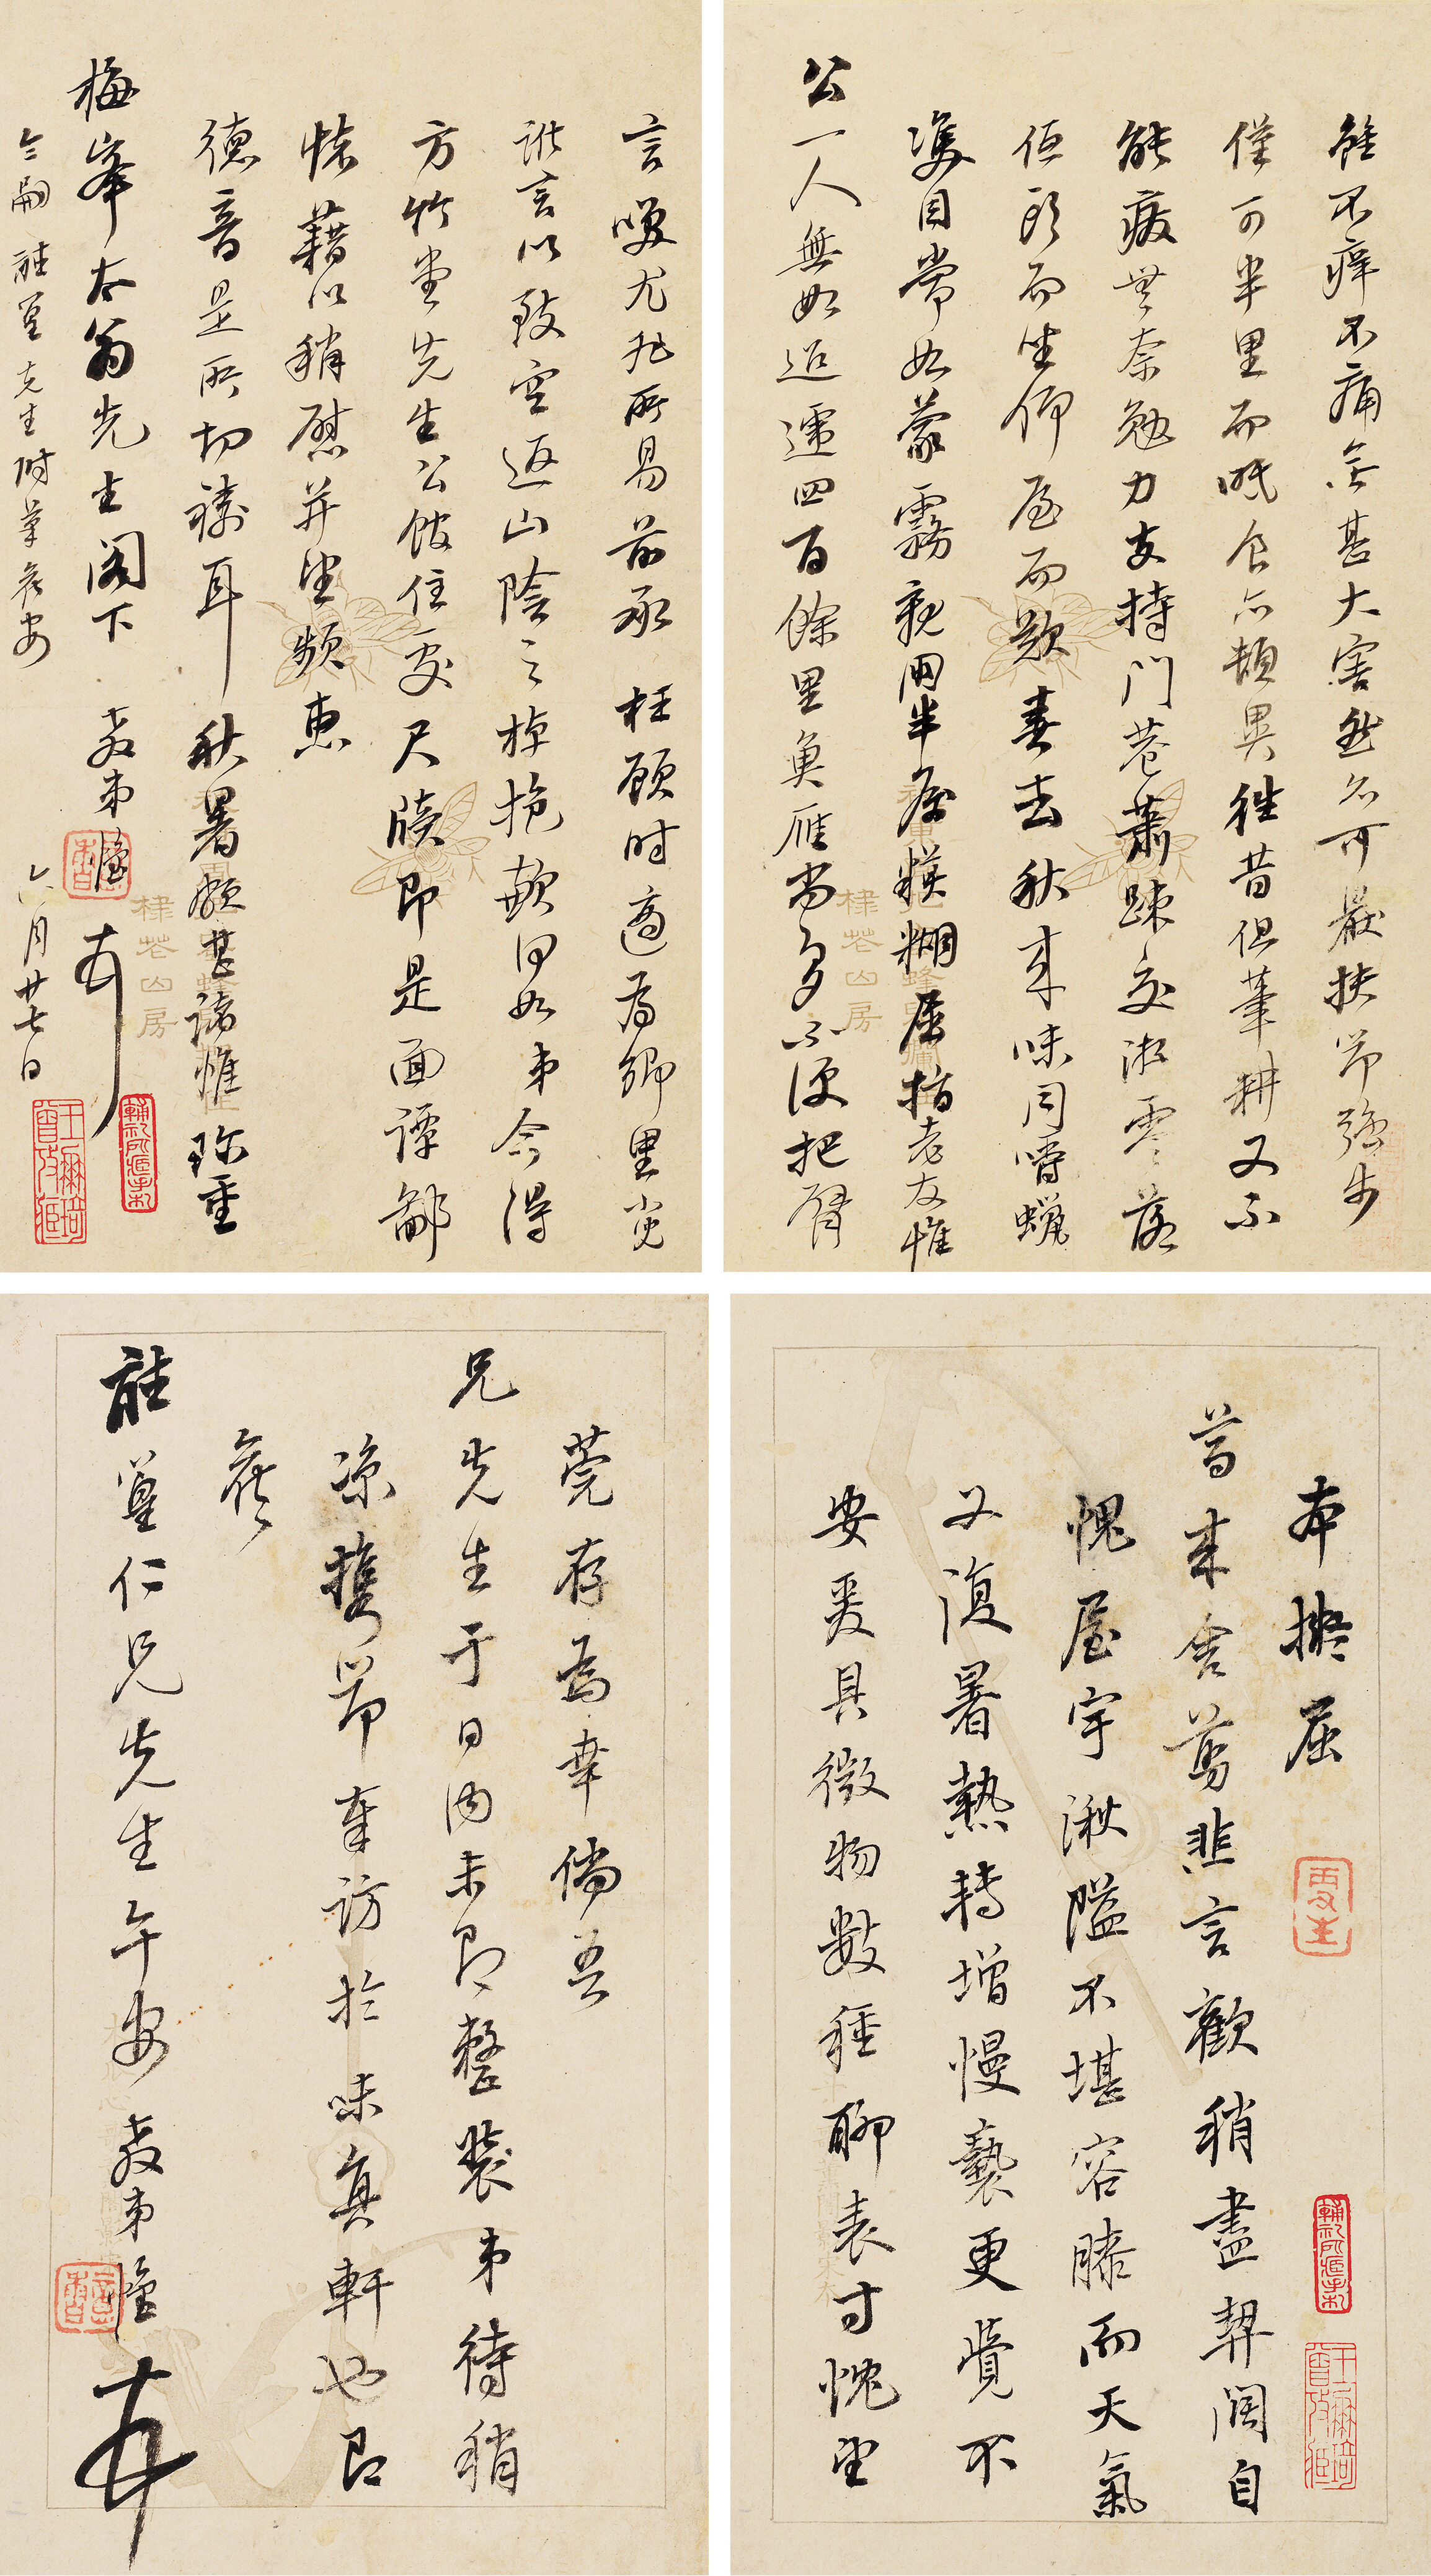 雖不痒不痛無甚大害然亦可厭扶筇強步
僅可半里而眠食亦頓異往昔但筆耕又不
能廢無奈勉力支持門巷蕭疎交游零落
低頭而坐仰屋而歎春去秋來味同嚼蠟
雙目常如蒙霧視困半為糢糊屈指老友惟
公一人無如迢遞四百餘里魚雁尚多不便把臂
言嘆尤非所易前承 枉顧時適為鄉里宵
訛言以致空返山陰之棹抱歉何如弟今得
方竹堂先生公館住處尺牘即是面譚鄙
悰藉以稍慰并望頻惠
德音是所切禱耳秋暑頗甚諸惟珍重
梅峯大翁先生閣下 教弟 頓首
令嗣 先生附筆候安 六月廿七日
棣華山房
本擬屈
駕來舍蔦韭言歡稍盡契闊自
愧屋宇湫隘不堪容膝而天氣
又復暑熱轉增慢褻更覺不
安爰具微物數種聊表寸愧望
莞存為幸倘吾
兄先生于日內未即整裝弟待稍
涼攜筇奉訪於味真軒也即
候
仁兄先生午安 教弟 頓首